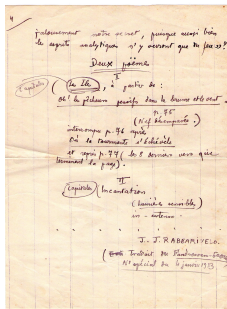 4
jalousement notre secret, puisque aussi bien
les esprits analytiques n'y verront que du feu »?
Deux poèmes
I
Capitale
Le Ile, à partir de:
Oh! le pêcheur pensif dans la brume et le vent
p. 75
interrompu p. 76 après
Où se tourmente
et repris p. 77 (les 8 derniers vers qui
terminent la page).
II
Capitale Incantation
(Lumière sensible)
in-extenso
J.-J. RABEARIVELO.
Extrait du
N° spécial du 4 janvier 19